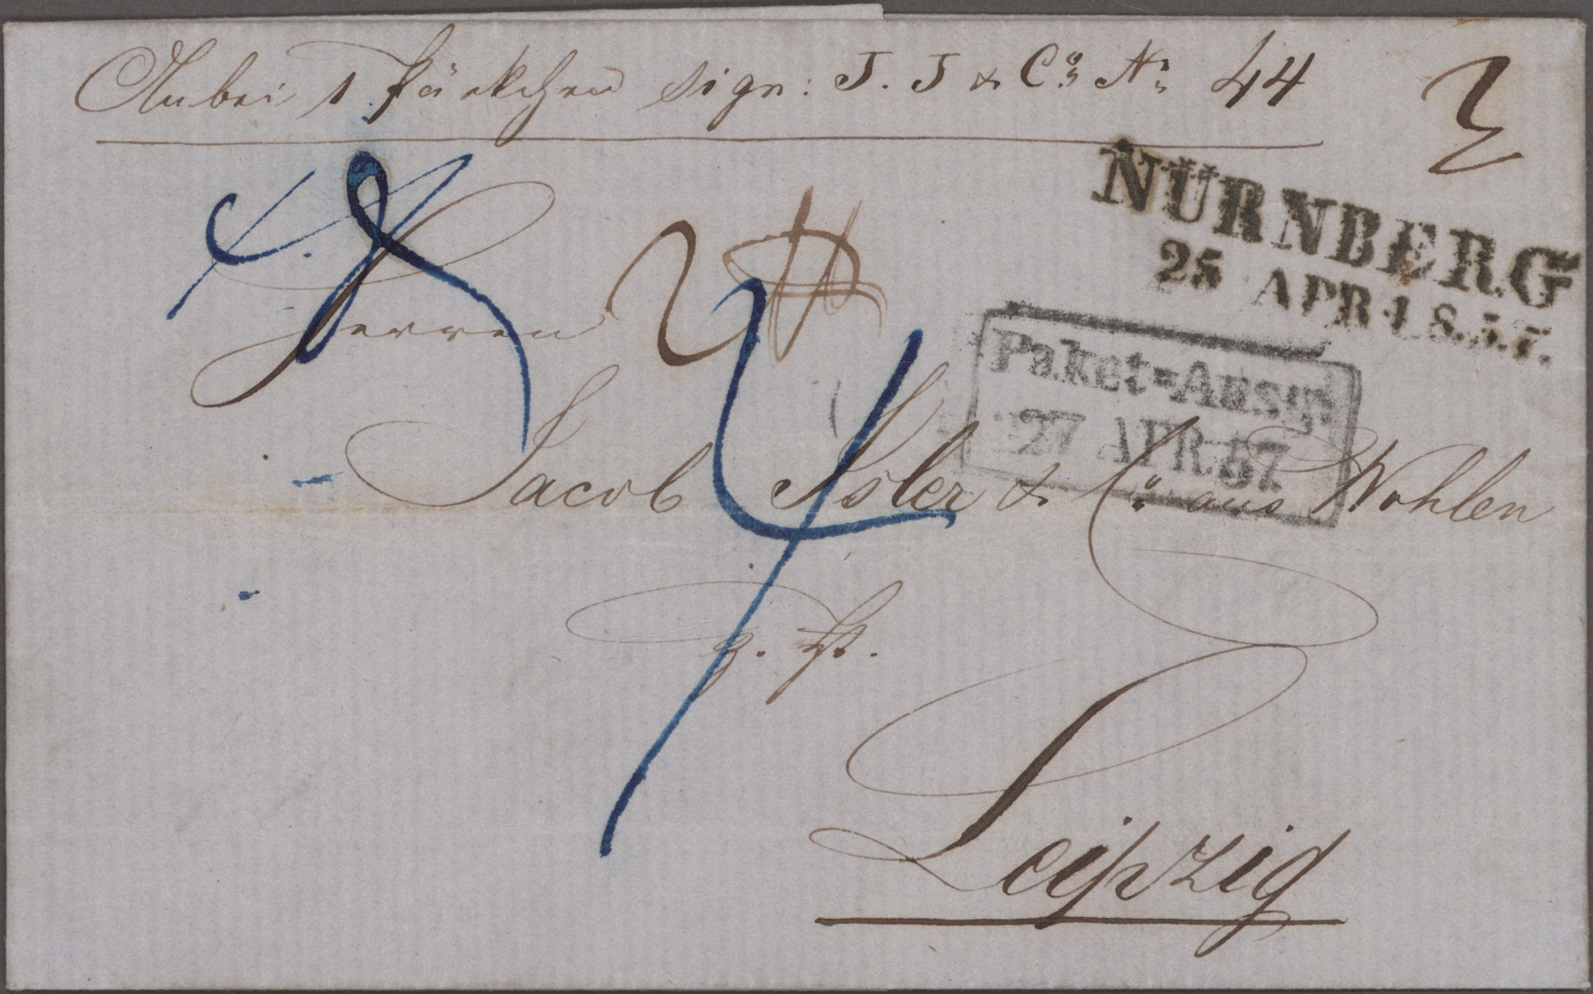 Anbei 1 Päckchen sign: J. J & Co No 44
NÜRNBERG
25 APR 1857.
Herren
Paket-Ausg:
27 APR 57
Jacob Isler & Co aus Wohlen
z. Zt.
Leipzig